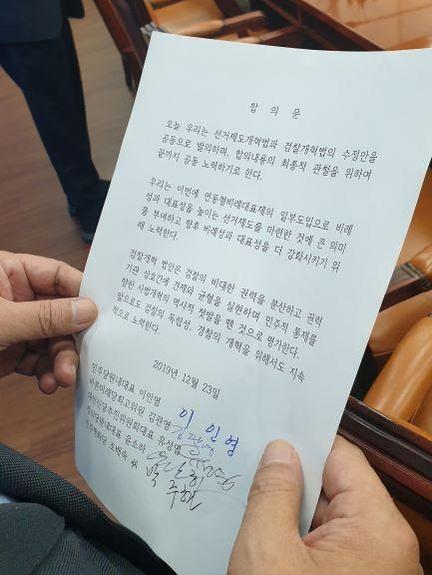 합 의 문
오늘 우리는 선거제도개혁법과 검찰개혁법의 수정안을
공동으로 발의하며, 합의내용의 최종적 관철을 위하여
끝까지 공동 노력하기로 한다.
우리는 이번에 연동형비례대표제의 일부도입으로 비례
성과 대표성을 높이는 선거제도를 마련한 것에 큰 의미
를 부여하고 향후 비례성과 대표성을 더 강화시키기 위
해 노력한다.
검찰개혁 법안은 검찰의 비대한 권력을 분산하고 권력
기관 상호간에 견제와 균형을 실현하며 민주적 통제를
향한 사법개혁의 역사적 첫발을 뗀 것으로 평가한다.
앞으로도 검찰의 독립성, 경찰의 개혁을 위해서도 지속
적으로 노력한다.
2019년 12월 23일
민주당원내대표 이인영 이 인 영
바른미래당최고위원 김관영
대안신당추진위원회대표 유성엽
정의당원내대표 윤소하
민주평화당 조배숙
박주현